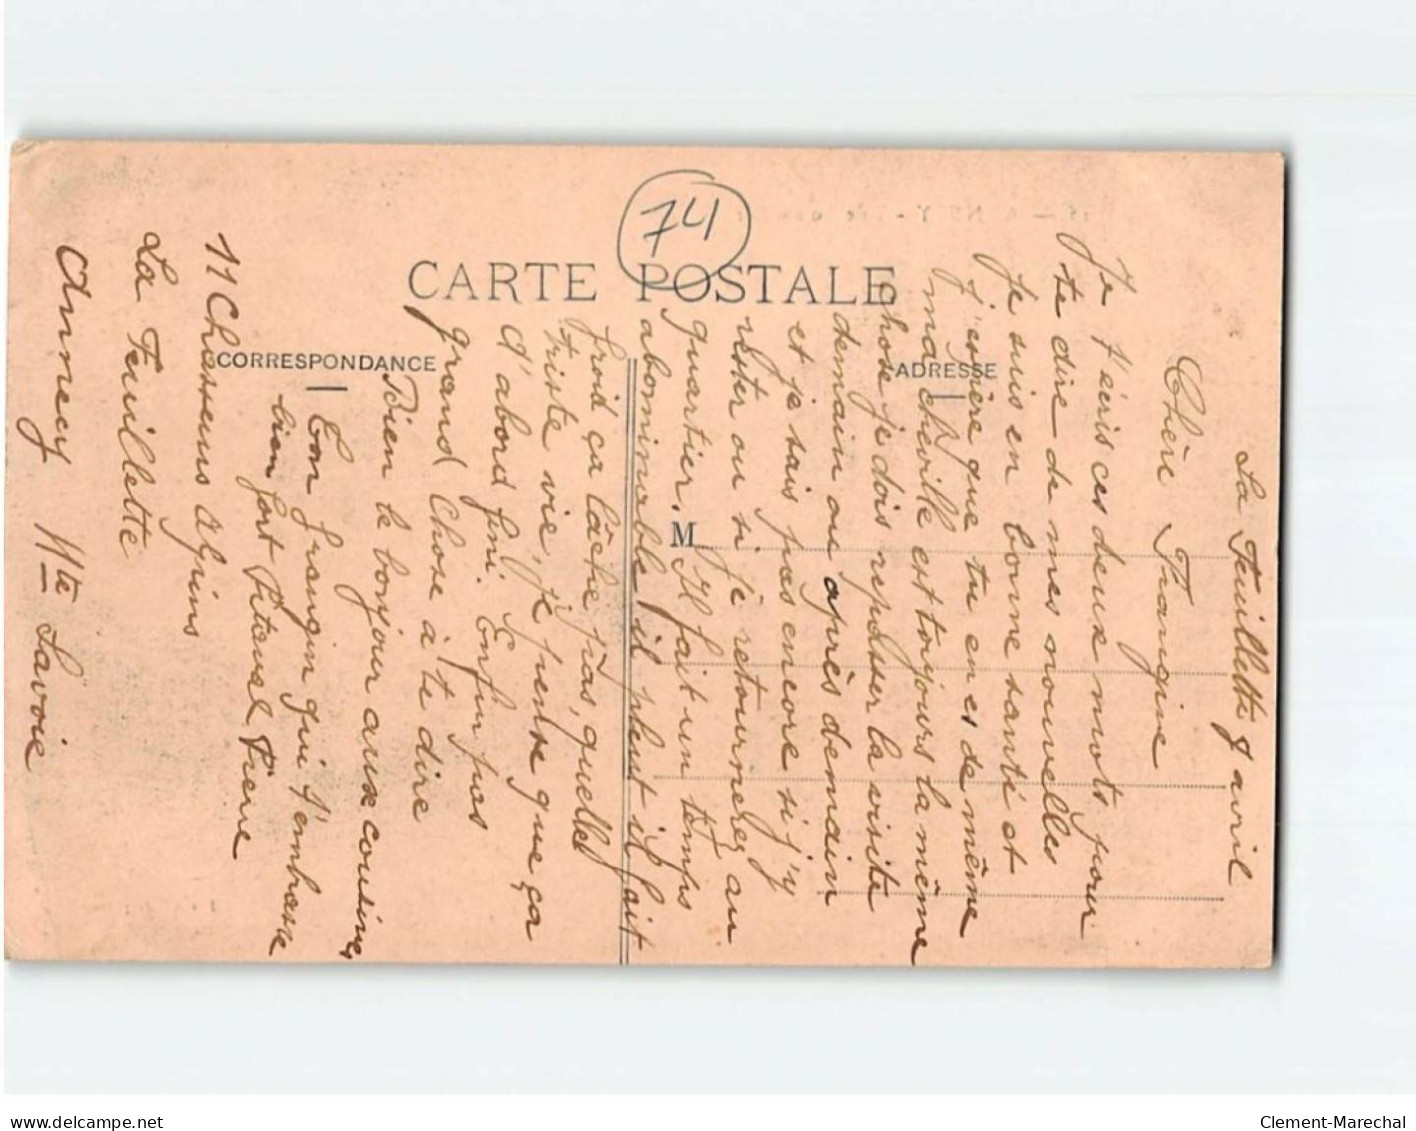 74
CARTE POSTALE
CORRESPONDANCE
ADRESSE
M
La Feuillette 7 avril
Chère Frangine
Je t'écris ces deux mots pour
te dire de mes nouvelles
Je suis en bonne santé et
j'espère que tu en es de même
ma cheville est toujours la même
chose je dois repasser la visite
demain ou après demain
et je sais pas encore si j'y
rester ou si je retournerez au
quartier. Il fait un temps
abominable il pleut il fait
froid ça lâche pas, quelle
triste vie, je pense que ça
d'abord fini. Enfin pas
grand Chose à te dire
Bien le bonjour aux cousines
Ton frangin qui t'embrasse
bien fort Pierre
11 Chasseurs Alpins
La Feuillette
Annecy Hte Savoie
delcampe.net
Clement-Marechal